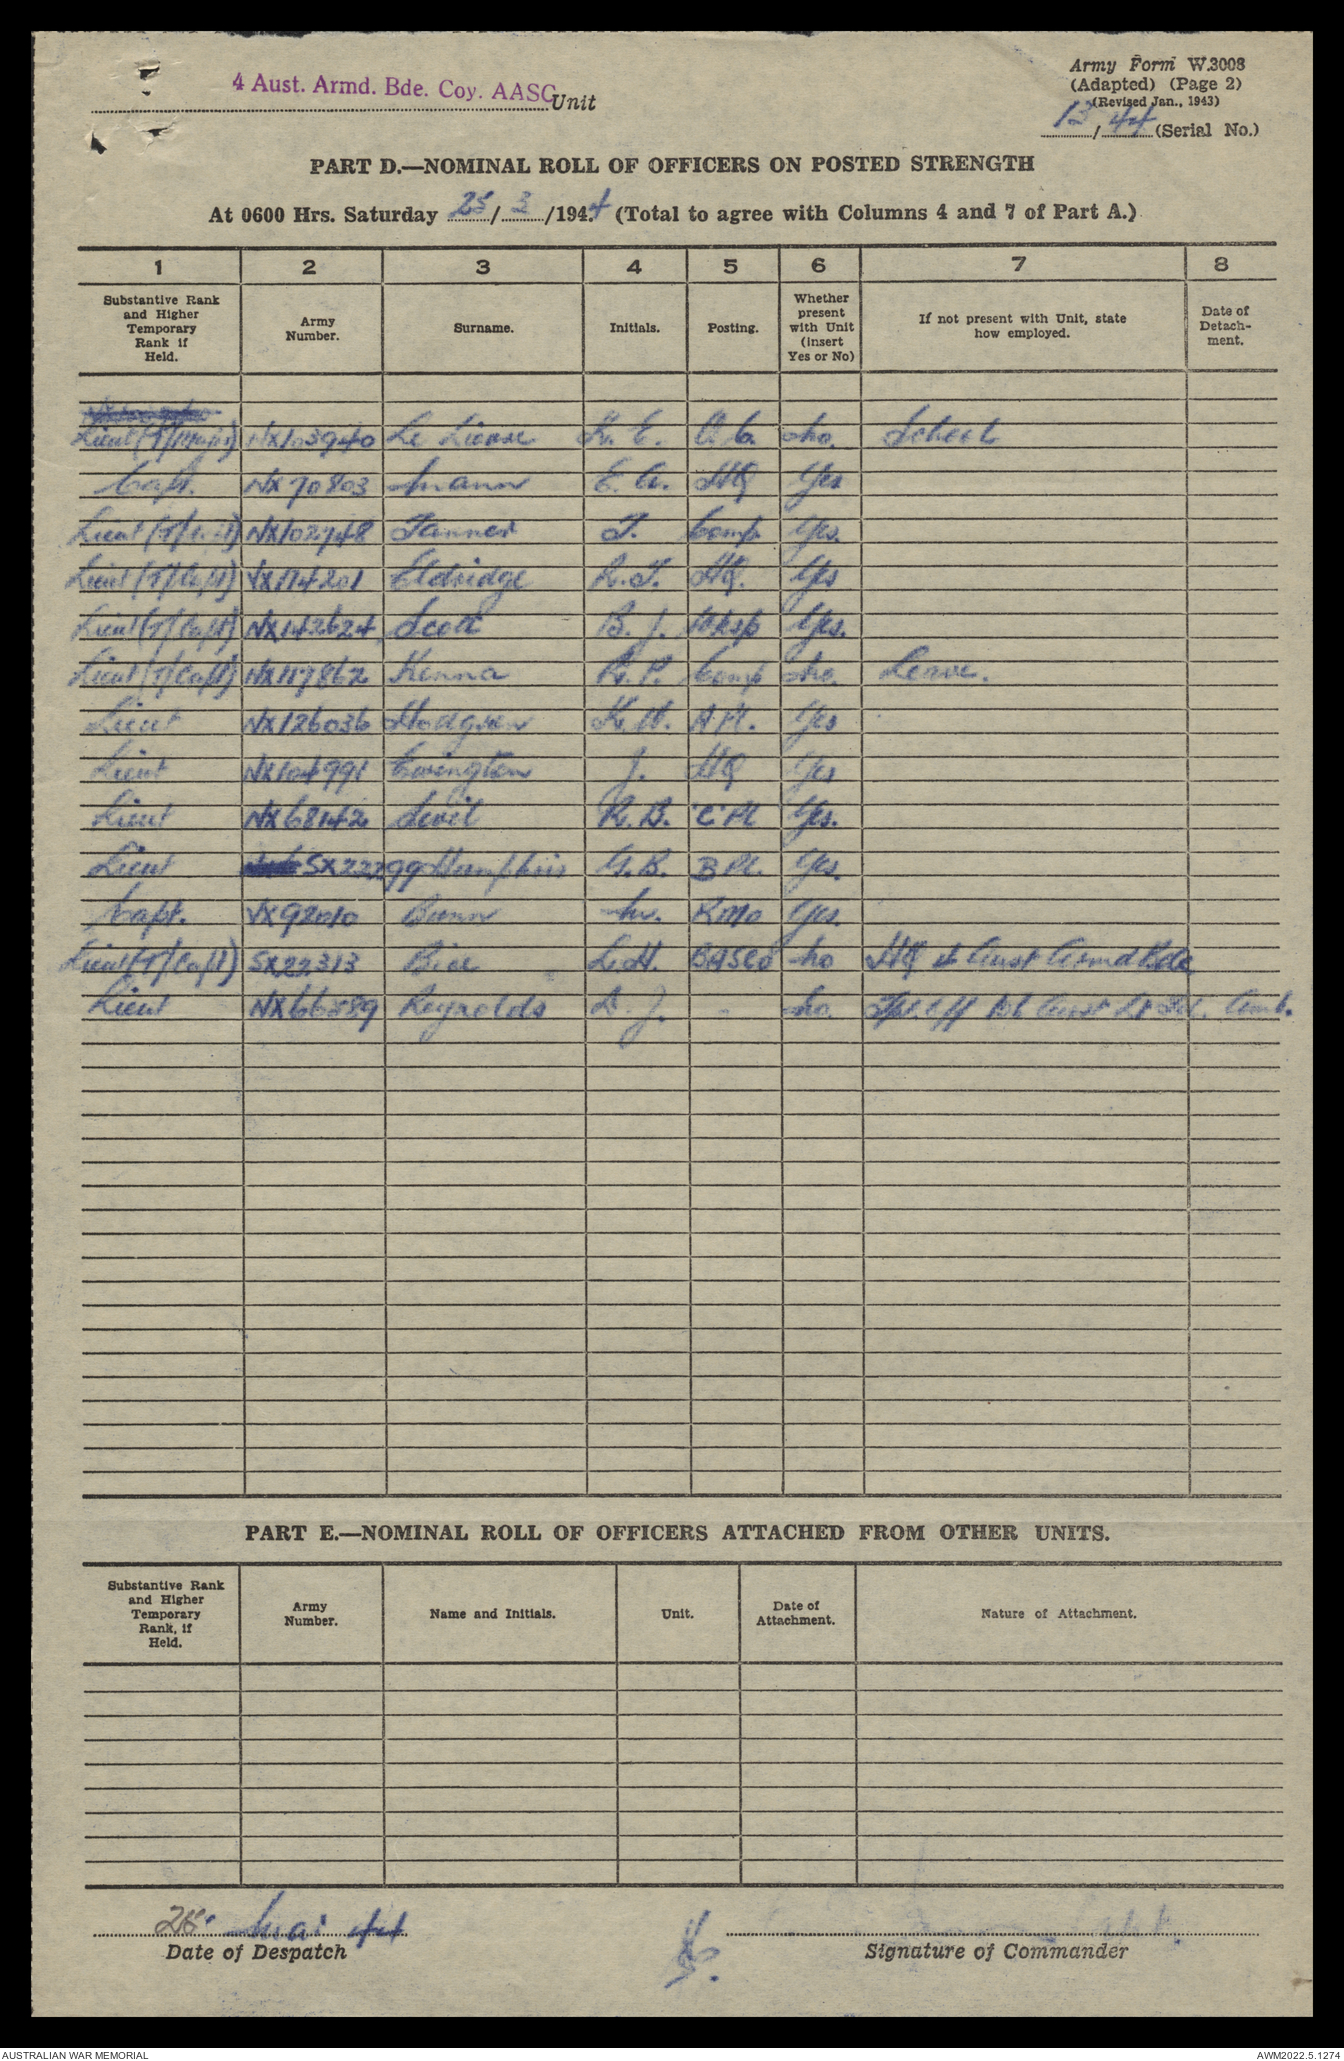 4 Aust. Armd. Bde. Coy. AASC Unit
Army Form W.3008
(Adapted) (Page 2)
(Revised Jan., 1943)
13/44 (Serial No.)
PART D.—NOMINAL ROLL OF OFFICERS ON POSTED STRENGTH
At 0600 Hrs. Saturday 25/3/1944 (Total to agree with Columns 4 and 7 of Part A.)
1 2 3 4 5 6 7 8
Substantive Rank and Higher Temporary Rank if Held.
Army Number.
Surname.
Initials.
Posting.
Whether present with Unit (insert Yes or No)
If not present with Unit, state how employed.
Date of Detach-ment.
Lieut (T/Major) NX103940 Le K. E. O.C. No. School
Capt. NX70803 Mann E. A. HQ Yes
Lieut (T/Capt) NX102748 Tanner T. Comp Yes.
Lieut (T/Capt) VX114201 Eldridge R.T. HQ. Yes
Lieut (T/Capt) NX142624 Scott B. J. Wksp Yes.
Lieut (T/Capt) NX117862 Kenna R. P. Comp No. Leave.
Lieut NX126036 Hodgson K. H. A Pl. Yes
Lieut NX104991 Evington J. HQ Yes
Lieut NX68142 R. B. 'C' Pl Yes.
Lieut SX22299 Humphris G. B. B Pl. Yes.
Capt. VX92010 Bunn W. RMO Yes.
Lieut (T/Capt) SX22313 Bice L.H. BASCO No HQ 4 Aust Armd Bde
Lieut NX66589 Reynolds D. J. - No. Tpt. Off Aust Lt Fd. Amb.
PART E.—NOMINAL ROLL OF OFFICERS ATTACHED FROM OTHER UNITS.
Substantive Rank and Higher Temporary Rank, if Held.
Army Number.
Name and Initials.
Unit.
Date of Attachment.
Nature of Attachment.
Mar 44
Date of Despatch
Capt.
Signature of Commander
AUSTRALIAN WAR MEMORIAL
AWM2022.5.1274